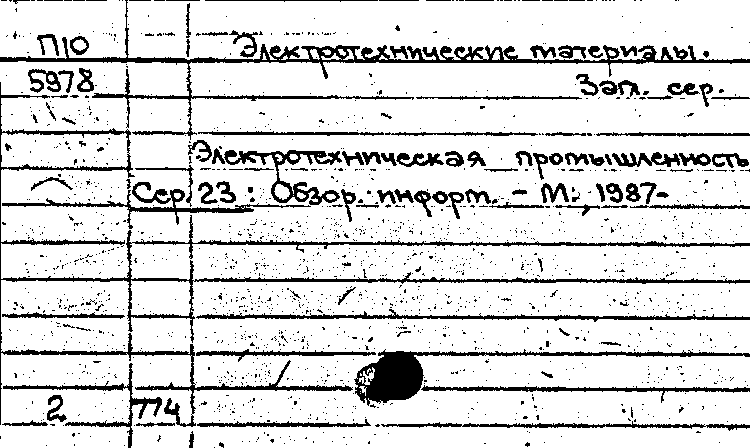 П10 Электротехнические материалы.
5978 Загл. сер.
Электротехническая промышленность
Сер. 23 : Обзор. информ. - М., 1987-
2 774